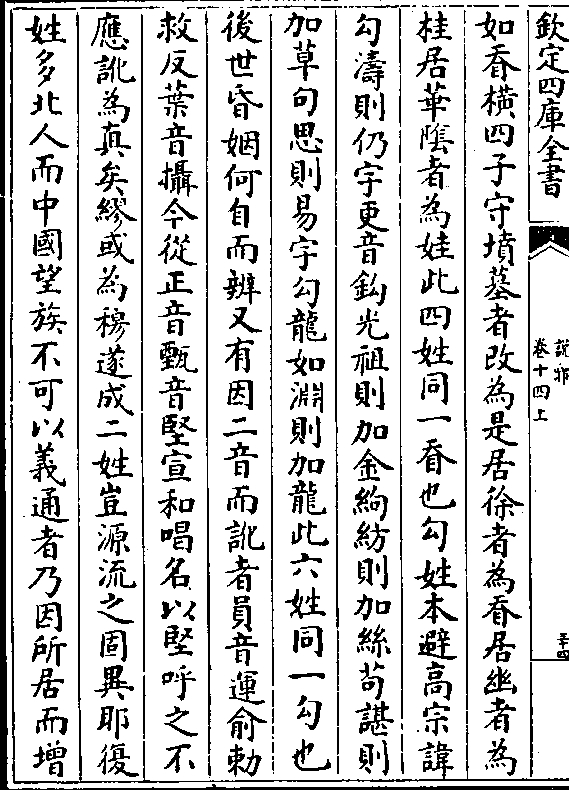 欽定四庫全書
說郛
卷十四上
三十四
如昋橫四子守墳墓者改為是居徐者為昋居幽者為
桂居華隂者為炔此四姓同一昋也勾姓本避高宗諱
勾濤則仍字更音鈎光祖則加金絢紡則加絲苟諶則
加草句思則易字勾龍如淵則加龍此六姓同一勾也
後世昏姻何自而辨又有因二音而訛者員音運俞勅
救反葉音攝今從正音甄音堅宣和唱名以堅呼之不
應訛為真矣繆或為穆遂成二姓豈源流之固異耶復
姓多北人而中國望族不可以義通者乃因所居而增